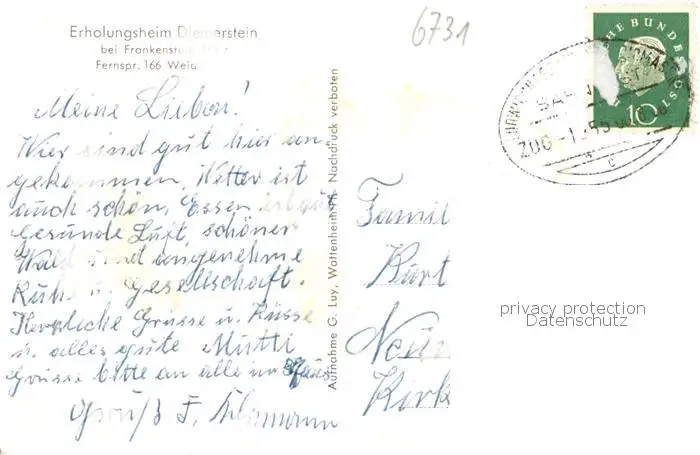 Erholungsheim Diemerstein
bei Frankenstein Pfalz
Fernspr. 166 Weid
6731
Meine Lieben!
Wir sind gut hier an-
gekommen, Wetter ist
auch schön, Essen ist gut
Gesunde Luft, schöner
Wald und angenehme
Ruhe u. Gesellschaft.
Herzliche Grüsse u. Küsse
u. alles gute Mutti
Grüsse bitte an alle im Haus
Gruß F.
Aufnahme G. Luy, Wattenheim/Pf. Nachdruck verboten
HE BUNDESPOST
10
BA
ZUG
Famil
Kurt
Neun
Kirk
privacy protection
Datenschutz